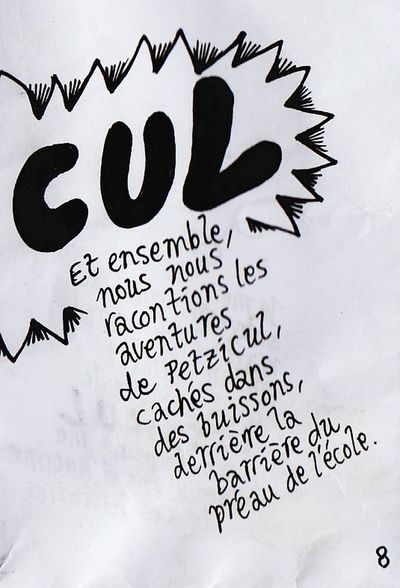 CUL
Et ensemble,
nous nous
racontions les
aventures
de Petzicul,
cachés dans
des buissons,
derrière la
barrière du
préau de l'école.
8